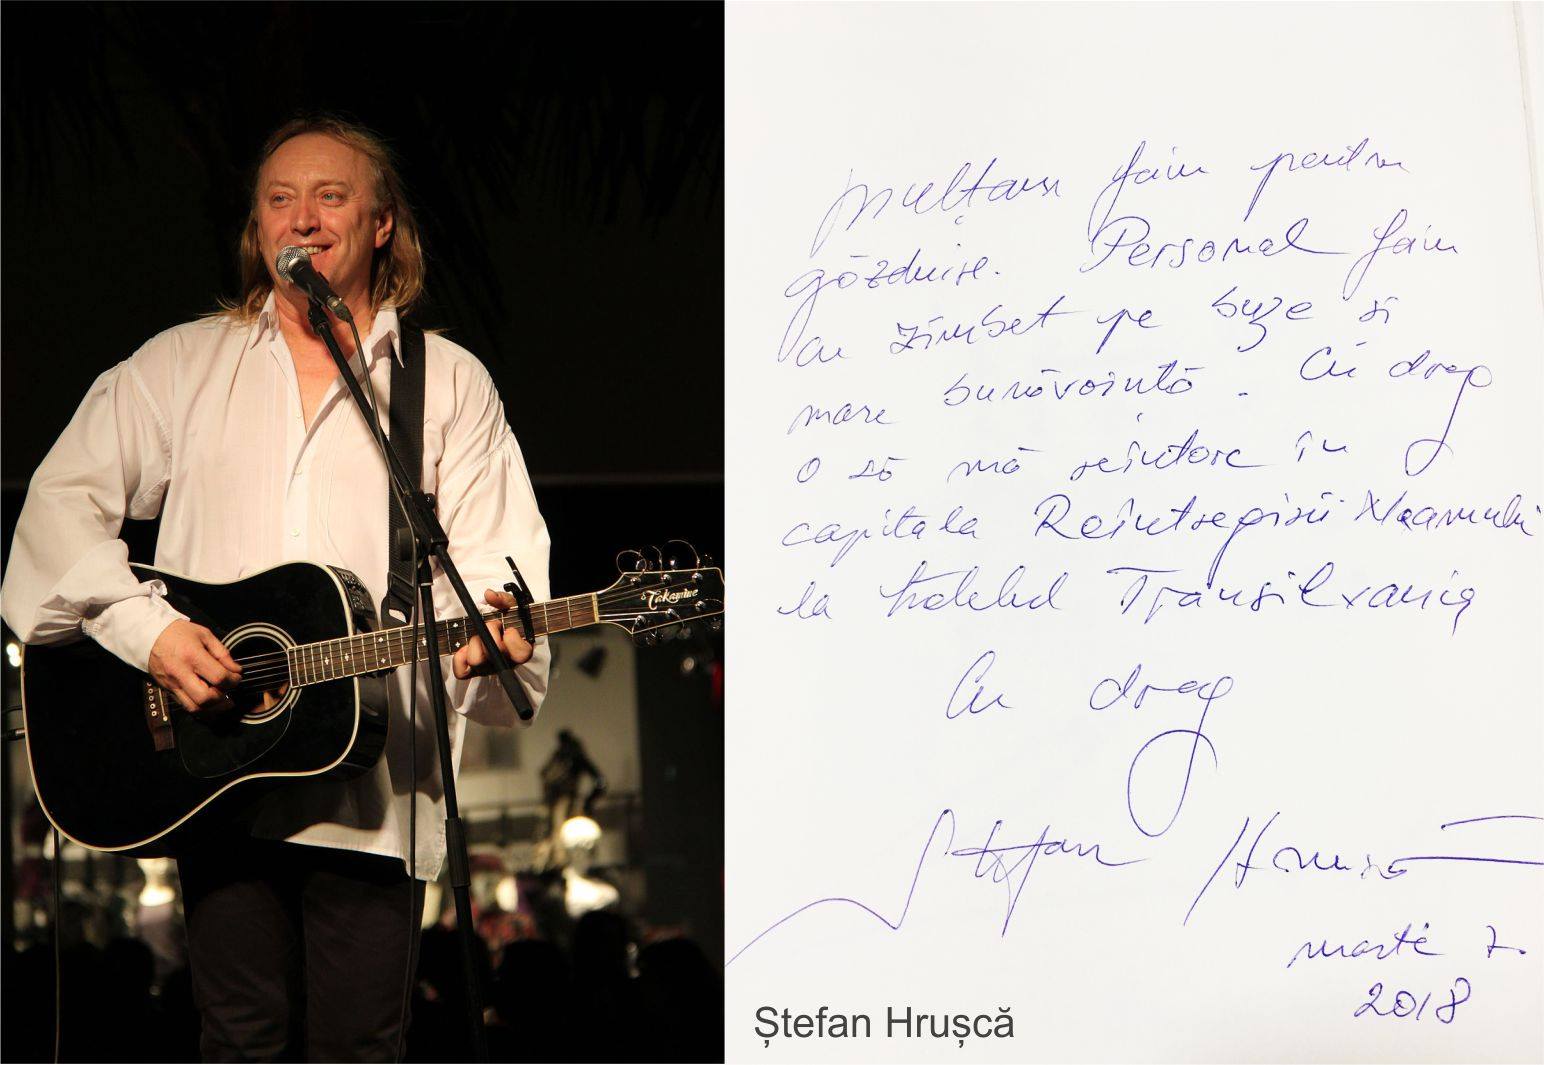 Takamine
Mulțam fain pentru
găzduire. Personal fain
cu zîmbet pe buze si
mare bunăvoință. Cu drag
o să mă reintorc în
capitala Reîntregirii Neamului
la hotelul Transilvania
Cu drag
Ștefan Hrușcă
martie 7.
2018
Ștefan Hrușcă